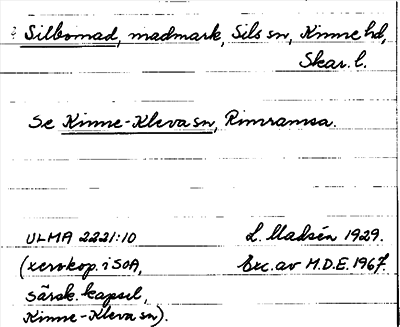 Silbomad, madmark, Sils sn, Kinne hd,
Skar. l.
Se Kinne-Kleva sn, Rimramsa.
ULMA 2221:10 L. Madsén 1929.
(xerokop. i SOA, Exc. av M.D.E. 1967.
särsk. kapsel,
Kinne-Kleva sn).